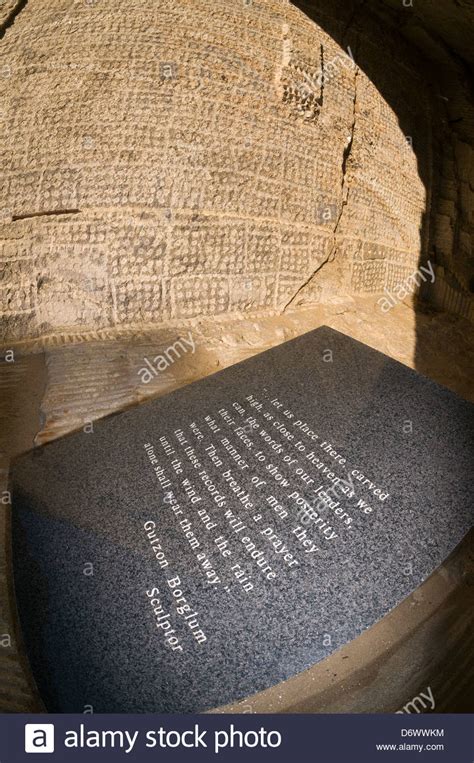 let us place there, carved
high, as close to heaven as we
can, the words of our leaders,
their faces, to show posterity
what manner of men they
were. Then breathe a prayer
that these records will endure
until the wind and the rain
alone shall wear them away."
Gutzon Borglum
Sculptor
alamy
alamy
alamy
alamy
alamy
alamy
alamy stock photo
D6WWKM
www.alamy.com